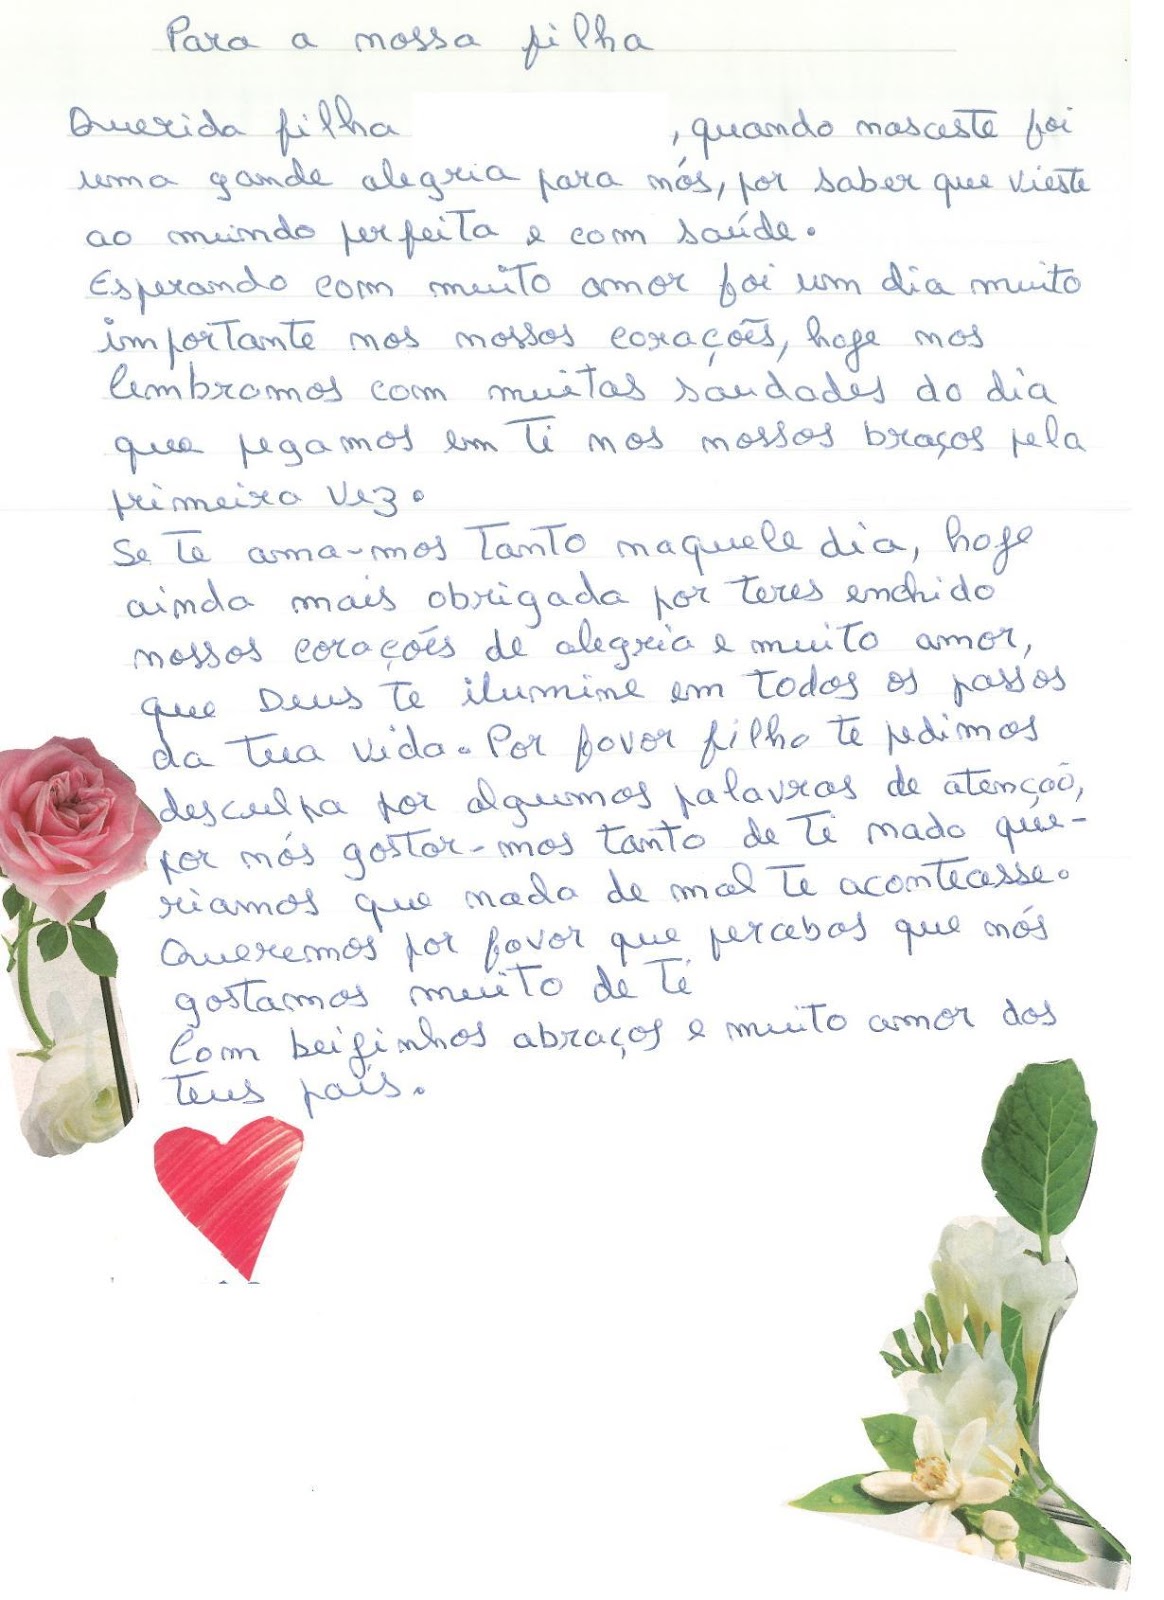 Para a nossa filha
Querida filha , quando nasceste foi
uma gande alegria para nós, por saber que vieste
ao mundo perfeita e com saúde.
Esperando com muito amor foi um dia muito
importante nos nossos corações, hoge nos
lembramos com muitas saudades do dia
que pegamos em ti nos nossos braços pela
primeira vez.
Se te ama-mos tanto naquele dia, hoge
ainda mais obrigada por teres enchido
nossos corações de alegria e muito amor,
que Deus te ilumine em todos os passos
da tua vida. Por favor filha te pedimos
desculpa por algumas palavras de atençaõ,
por nós gostar-mos tanto de ti nada que-
riamos que nada de mal te acontecasse.
Queremos por favor que percebas que nós
gostamos muito de ti
Com beiginhos abraços e muito amor dos
teus país.